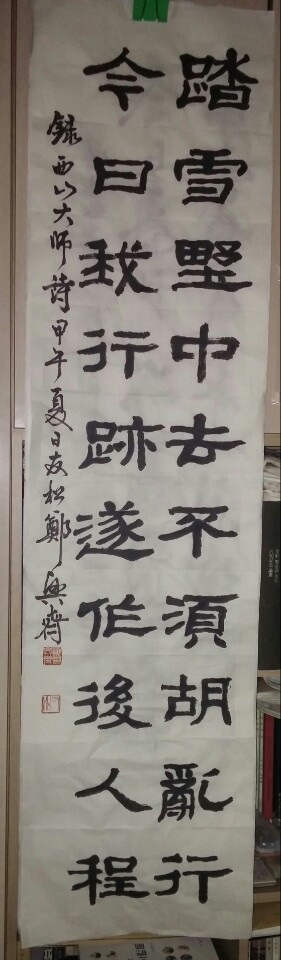 踏雪墅中去不須胡亂行
今日我行跡遂作後人程
録西山大师詩甲午夏日友松鄭